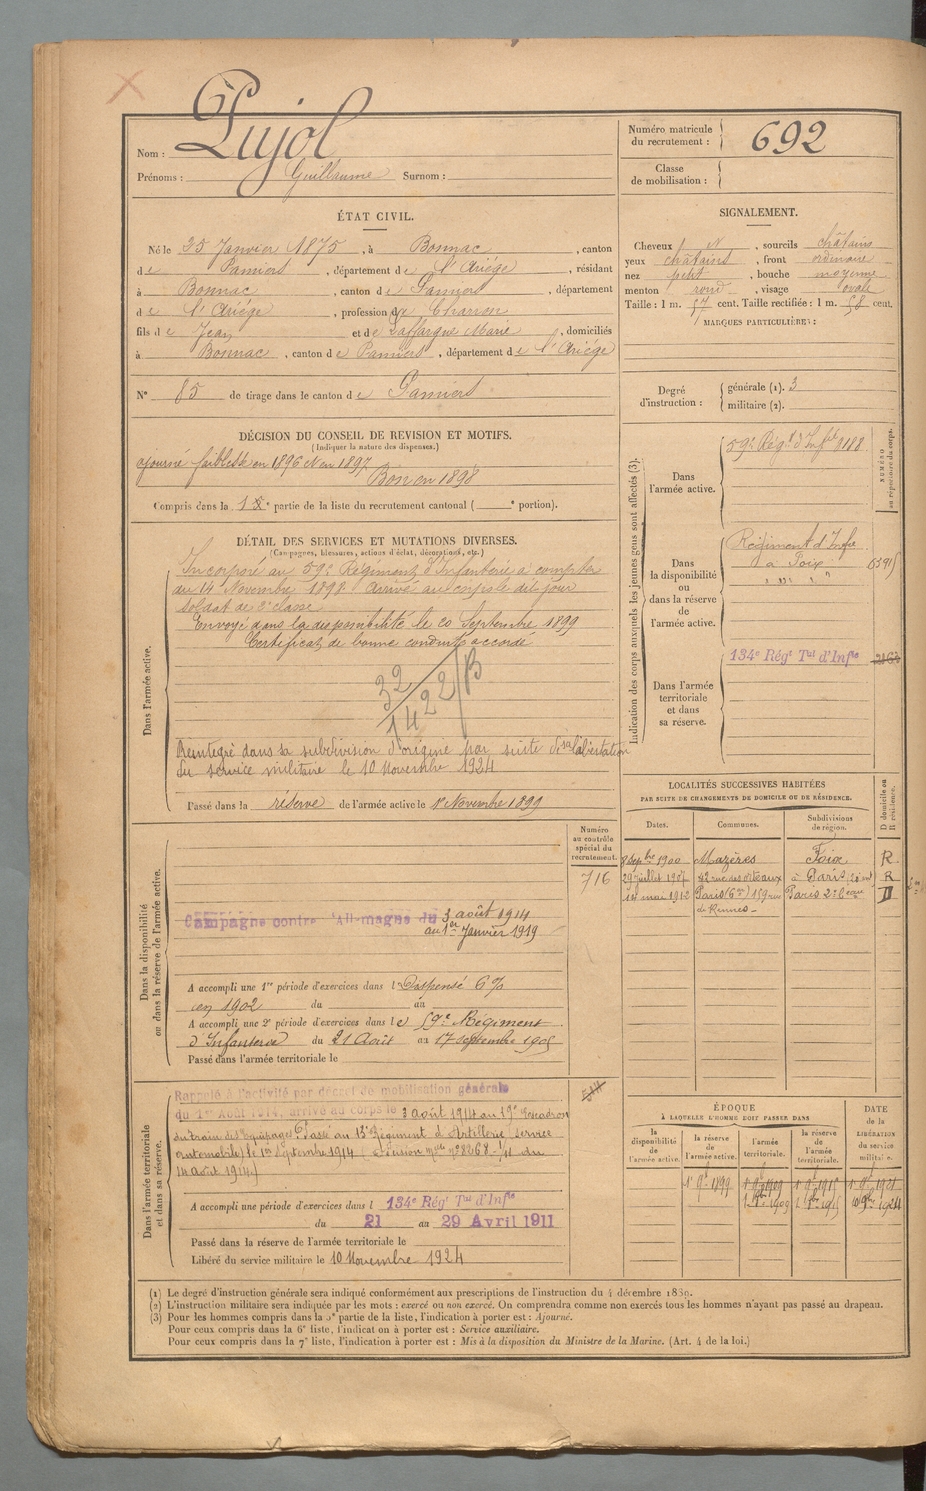 Nom : Pujol
Prénoms : Guillaume Surnom :
Numéro matricule du recrutement : 692
Classe de mobilisation :
ÉTAT CIVIL.
Né le 25 Janvier 1875, à Bonnac, canton
de Pamiers, département de l'Ariége, résidant
à Bonnac, canton de Pamiers, département
de l'Ariége, profession de Charron
fils de Jean et de Laffargue Marie, domiciliés
à Bonnac, canton de Pamiers, département de l'Ariége
N° 85 de tirage dans le canton de Pamiers
SIGNALEMENT.
Cheveux N, sourcils châtains
yeux châtains, front ordinaire
nez petit, bouche moyenne
menton rond, visage ovale
Taille : 1 m. 57 cent. Taille rectifiée : 1 m. 58 cent.
MARQUES PARTICULIÈRES :
Degré d'instruction : générale (1). 3
militaire (2).
DÉCISION DU CONSEIL DE REVISION ET MOTIFS.
(Indiquer la nature des dispenses.)
ajourné faiblesse en 1896 et en 1897
Bon en 1898
Compris dans la 1e partie de la liste du recrutement cantonal ( e portion).
DÉTAIL DES SERVICES ET MUTATIONS DIVERSES.
(Campagnes, blessures, actions d'éclat, décorations, etc.)
Dans l'armée active.
Incorporé au 59e Régiment d'Infanterie à compter
du 14 Novembre 1898. Arrivé au corps le dit jour
soldat de 2e classe
Envoyé dans la disponibilité le 20 Septembre 1899
Certificat de bonne conduite accordé
32
1422/B
Réintegré dans sa subdivision d'origine par suite de sa libération
du service militaire le 10 Novembre 1924
Passé dans la réserve de l'armée active le 1er Novembre 1899
Indication des corps auxquels les jeunes gens sont affectés (3).
NUMÉRO au répertoire du corps.
Dans l'armée active.
59e Régt d'Infie 9188
Dans la disponibilité ou dans la réserve de l'armée active.
Régiment d'Infie
à Foix
Dans l'armée territoriale et dans sa réserve.
134e Régt Tal d'Infie
LOCALITÉS SUCCESSIVES HABITÉES
PAR SUITE DE CHANGEMENTS DE DOMICILE OU DE RÉSIDENCE.
Dates. Communes. Subdivisions de région. D domicile ou R résidence.
8 Septbre 1900 Mazères Foix R
29 juillet 1907 à Paris R
1er mai 1912 Paris (6e) 159 rue de Rennes D
Dans la disponibilité ou dans la réserve de l'armée active.
Numéro au contrôle spécial du recrutement.
716
Campagne contre l'Allemagne du 3 août 1914
au 1er Janvier 1919
A accompli une 1re période d'exercices dans l Dispensé 6 %
en 1902 du au
A accompli une 2e période d'exercices dans le 59e Régiment
d'Infanterie du 21 Août au 17 septembre 1905
Passé dans l'armée territoriale le
Dans l'armée territoriale et dans sa réserve.
Rappelé à l'activité par décret de mobilisation générale
du 1er Août 1914, arrivé au corps le 3 août 1914 au 19e Escadron
du train des Equipages. Passé au 13e Régiment d'Artillerie (service
automobile) le 1er Septembre 1914 (
14 août 1914)
A accompli une période d'exercices dans l 134e Régt Tal d'Infie
du 21 au 29 Avril 1911
Passé dans la réserve de l'armée territoriale le
Libéré du service militaire le 10 Novembre 1924
ÉPOQUE
À LAQUELLE L'HOMME DOIT PASSER DANS
la disponibilité de l'armée active. la réserve de l'armée active. l'armée territoriale. la réserve de l'armée territoriale.
DATE de la LIBÉRATION du service militaire.
(1) Le degré d'instruction générale sera indiqué conformément aux prescriptions de l'instruction du 4 décembre 1889.
(2) L'instruction militaire sera indiquée par les mots : exercé ou non exercé. On comprendra comme non exercés tous les hommes n'ayant pas passé au drapeau.
(3) Pour les hommes compris dans la 5e partie de la liste, l'indication à porter est : Ajourné.
Pour ceux compris dans la 6e liste, l'indication à porter est : Service auxiliaire.
Pour ceux compris dans la 7e liste, l'indication à porter est : Mis à la disposition du Ministre de la Marine. (Art. 4 de la loi.)